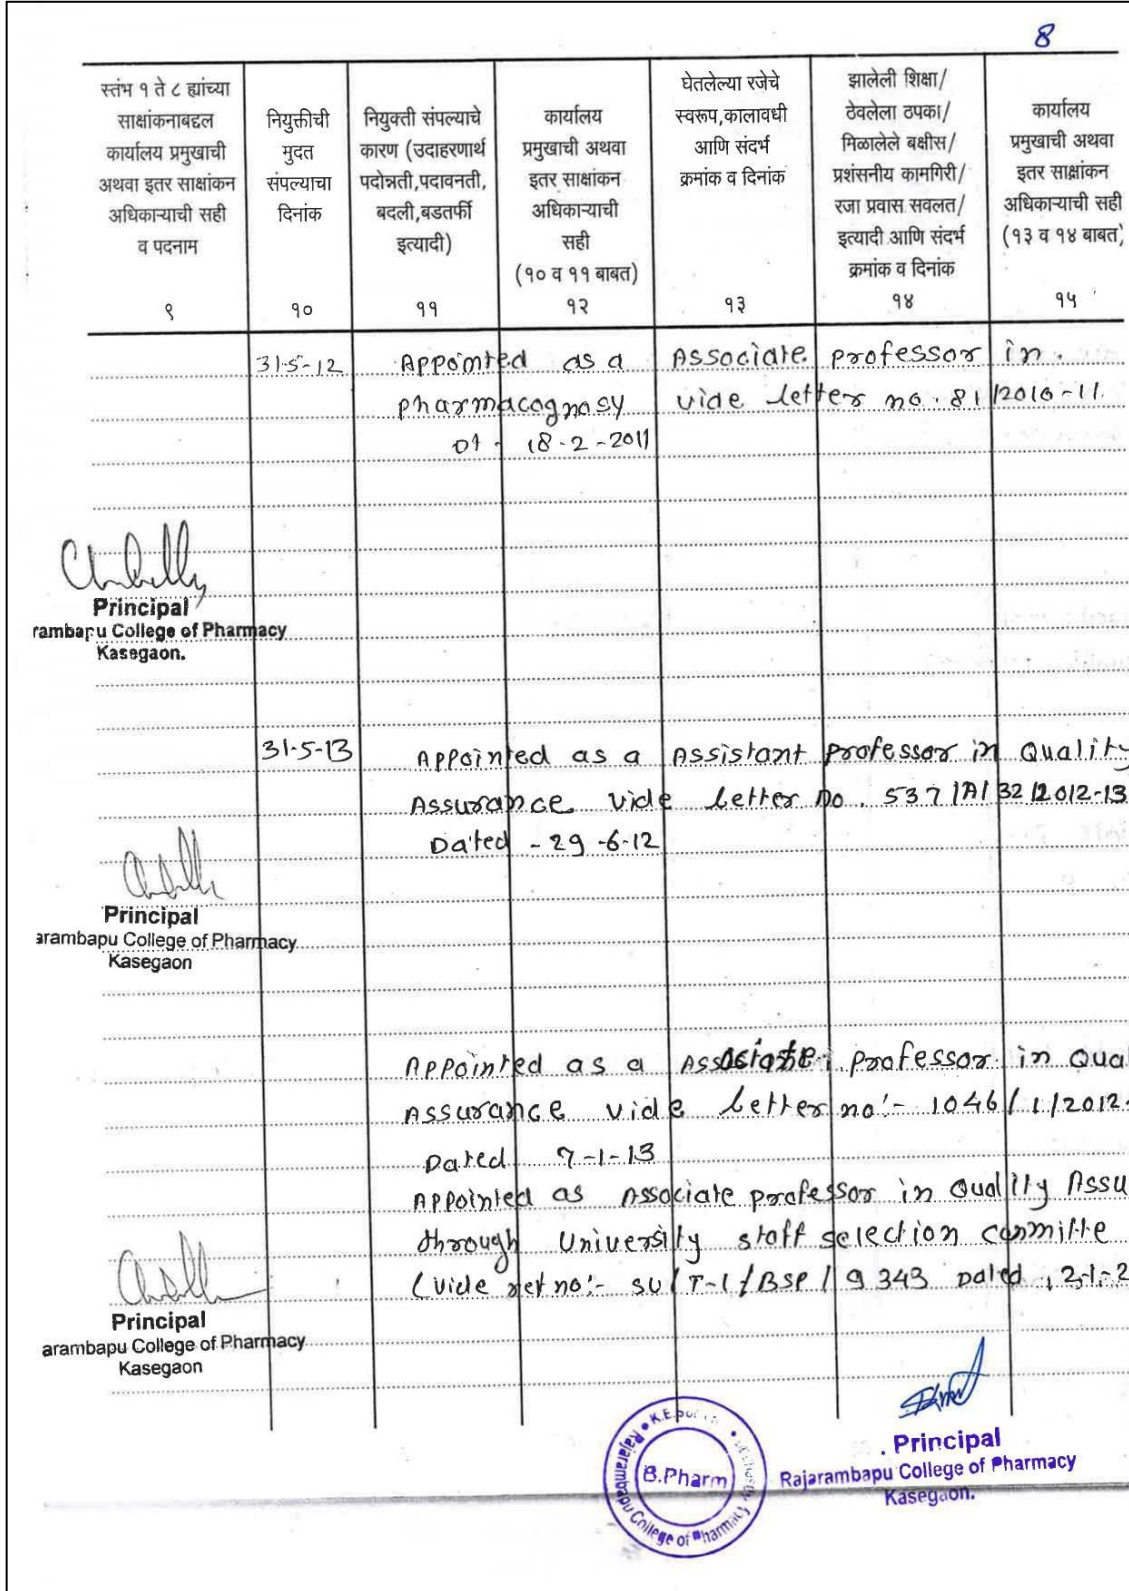 8
स्तंभ १ ते ८ ह्यांच्या
साक्षांकनाबद्दल
कार्यालय प्रमुखाची
अथवा इतर साक्षांकन
अधिकाऱ्याची सही
व पदनाम
९
नियुक्तीची
मुदत
संपल्याचा
दिनांक
१०
नियुक्ती संपल्याचे
कारण (उदाहरणार्थ
पदोन्नती,पदावनती,
बदली,बडतर्फी
इत्यादी)
११
कार्यालय
प्रमुखाची अथवा
इतर साक्षांकन
अधिकाऱ्याची
सही
(१० व ११ बाबत)
१२
घेतलेल्या रजेचे
स्वरूप,कालावधी
आणि संदर्भ
क्रमांक व दिनांक
१३
झालेली शिक्षा/
ठेवलेला ठपका/
मिळालेले बक्षीस/
प्रशंसनीय कामगिरी/
रजा प्रवास सवलत/
इत्यादी आणि संदर्भ
क्रमांक व दिनांक
१४
कार्यालय
प्रमुखाची अथवा
इतर साक्षांकन
अधिकाऱ्याची सही
(१३ व १४ बाबत)
१५
31-5-12 Appointed as a Associate professor in
pharmacognosy vide letter no. 81/2010-11.
18-2-2011
Principal
rambapu College of Pharmacy
Kasegaon.
31-5-13 Appointed as a Assistant professor in Quality
Assurance vide letter no. 537/A/32/2012-13
Dated - 29-6-12
Principal
arambapu College of Pharmacy
Kasegaon
Appointed as a Associate professor in Qual
Assurance vide letter no:- 1046/1/2012-
Dated 7-1-13
Appointed as Associate professor in Quality Assu
through University staff selection committe
(vide ref no:- SU/T-1/BSP/9343 Dated
Principal
arambapu College of Pharmacy
Kasegaon
K.E.
Rajarambapu College of Pharmacy
B.Pharm
Principal
Rajarambapu College of Pharmacy
Kasegaon.